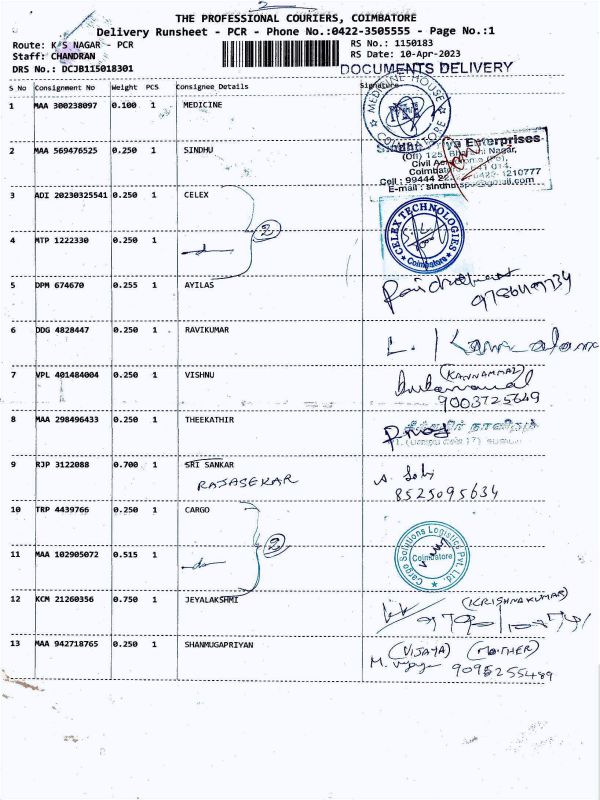 2
THE PROFESSIONAL COURIERS, COIMBATORE
Delivery Runsheet - PCR - Phone No.:0422-3505555 - Page No.:1
Route: K S NAGAR - PCR
RS No.: 1150183
Staff: CHANDRAN
RS Date: 10-Apr-2023
DRS No.: DCJB115018301
DOCUMENTS DELIVERY
S No Consignment No Weight PCS Consignee Details Signature
1 MAA 300238097 0.100 1 MEDICINE
MEDICINE HOUSE COIMBATORE
2 MAA 569476525 0.250 1 SINDHU
Enterprises
Civil
E-mail :
3 ADI 20230325541 0.250 1 CELEX
CELEX TECHNOLOGIES
Coimbatore
2
4 MTP 1222330 0.250 1
5 DPM 674670 0.255 1 AYILAS
6 DDG 4828447 0.250 1 RAVIKUMAR
7 VPL 401484004 0.250 1 VISHNU
(KANNAMMAL)
9003725649
8 MAA 298496433 0.250 1 THEEKATHIR
9 RJP 3122088 0.700 1 SRI SANKAR
RAJASEKAR
8525095634
10 TRP 4439766 0.250 1 CARGO
2
Cargo Solutions Logistics Pvt. Ltd.
Coimbatore
11 MAA 102905072 0.515 1
12 KCM 21260356 0.750 1 JEYALAKSHMI
(KRISHNAKUMAR)
13 MAA 942718765 0.250 1 SHANMUGAPRIYAN
(VIJAYA) (MOTHER)
9095255489